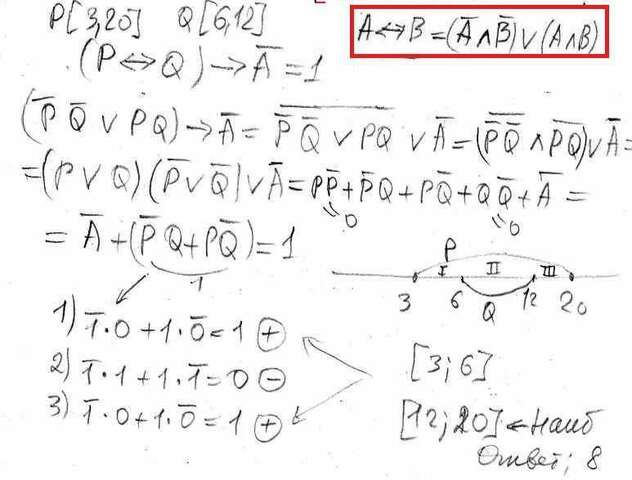 P[3,20] Q[6,12]
A⇔B=(A̅∧B̅)∨(A∧B)
(P⇔Q)→A̅=1
(P̅ Q̅ ∨ PQ)→A̅= P̅͞ ͞Q̅͞ ͞∨͞ ͞P͞Q͞ ∨A̅=(P̅͞Q̅͞ ∧P͞Q͞)∨A̅=
=(P∨Q)(P̅∨Q̅)∨A̅=PP̅+P̅Q+PQ̅+QQ̅+A̅=
=0 =0
= A̅+(P̅Q+PQ̅)=1
1
P
I II III
3 6 12 20
Q
1) 1̅·0+1·0̅=1 ⊕
2) 1̅·1+1·1̅=0 ⊖
3) 1̅·0+1·0̅=1 ⊕
[3;6]
[12;20]←Наиб
Ответ; 8